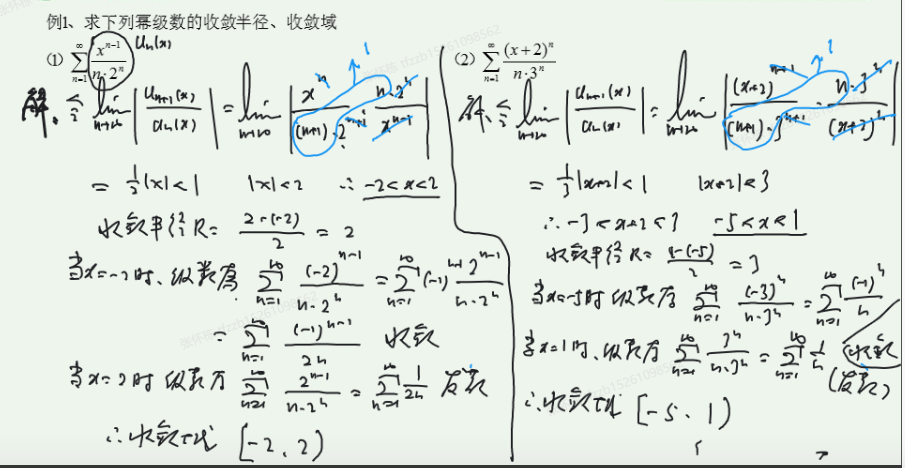 例1、求下列幂级数的收敛半径、收敛域
(1) $\sum_{n=1}^{\infty} \frac{x^{n-1}}{n \cdot 2^n}$ $u_n(x)$
解: 令 $\lim_{n \to \infty} \left| \frac{u_{n+1}(x)}{u_n(x)} \right| = \lim_{n \to \infty} \left| \frac{x^n}{(n+1) \cdot 2^{n+1}} \cdot \frac{n \cdot 2^n}{x^{n-1}} \right|$ 1
$= \frac{1}{2}|x| < 1$ $|x| < 2$ ∴ $-2 < x < 2$
收敛半径 $R = \frac{2-(-2)}{2} = 2$
当 $x=-2$ 时、级数为 $\sum_{n=1}^{\infty} \frac{(-2)^{n-1}}{n \cdot 2^n} = \sum_{n=1}^{\infty} \frac{(-1)^{n-1} 2^{n-1}}{n \cdot 2^n}$
$= \sum_{n=1}^{\infty} \frac{(-1)^{n-1}}{2n}$ 收敛
当 $x=2$ 时 级数为 $\sum_{n=1}^{\infty} \frac{2^{n-1}}{n \cdot 2^n} = \sum_{n=1}^{\infty} \frac{1}{2n}$ 发散
∴ 收敛域 $[-2, 2)$
(2) $\sum_{n=1}^{\infty} \frac{(x+2)^n}{n \cdot 3^n}$
解: 令 $\lim_{n \to \infty} \left| \frac{u_{n+1}(x)}{u_n(x)} \right| = \lim_{n \to \infty} \left| \frac{(x+2)^{n+1}}{(n+1) \cdot 3^{n+1}} \cdot \frac{n \cdot 3^n}{(x+2)^n} \right|$ 1
$= \frac{1}{3}|x+2| < 1$ $|x+2| < 3$
∴ $-3 < x+2 < 3$ $-5 < x < 1$
收敛半径 $R = \frac{1-(-5)}{2} = 3$
当 $x=-5$ 时 级数为 $\sum_{n=1}^{\infty} \frac{(-3)^n}{n \cdot 3^n} = \sum_{n=1}^{\infty} \frac{(-1)^n}{n}$
收敛
当 $x=1$ 时、级数为 $\sum_{n=1}^{\infty} \frac{3^n}{n \cdot 3^n} = \sum_{n=1}^{\infty} \frac{1}{n}$
(发散)
∴ 收敛域 $[-5, 1)$